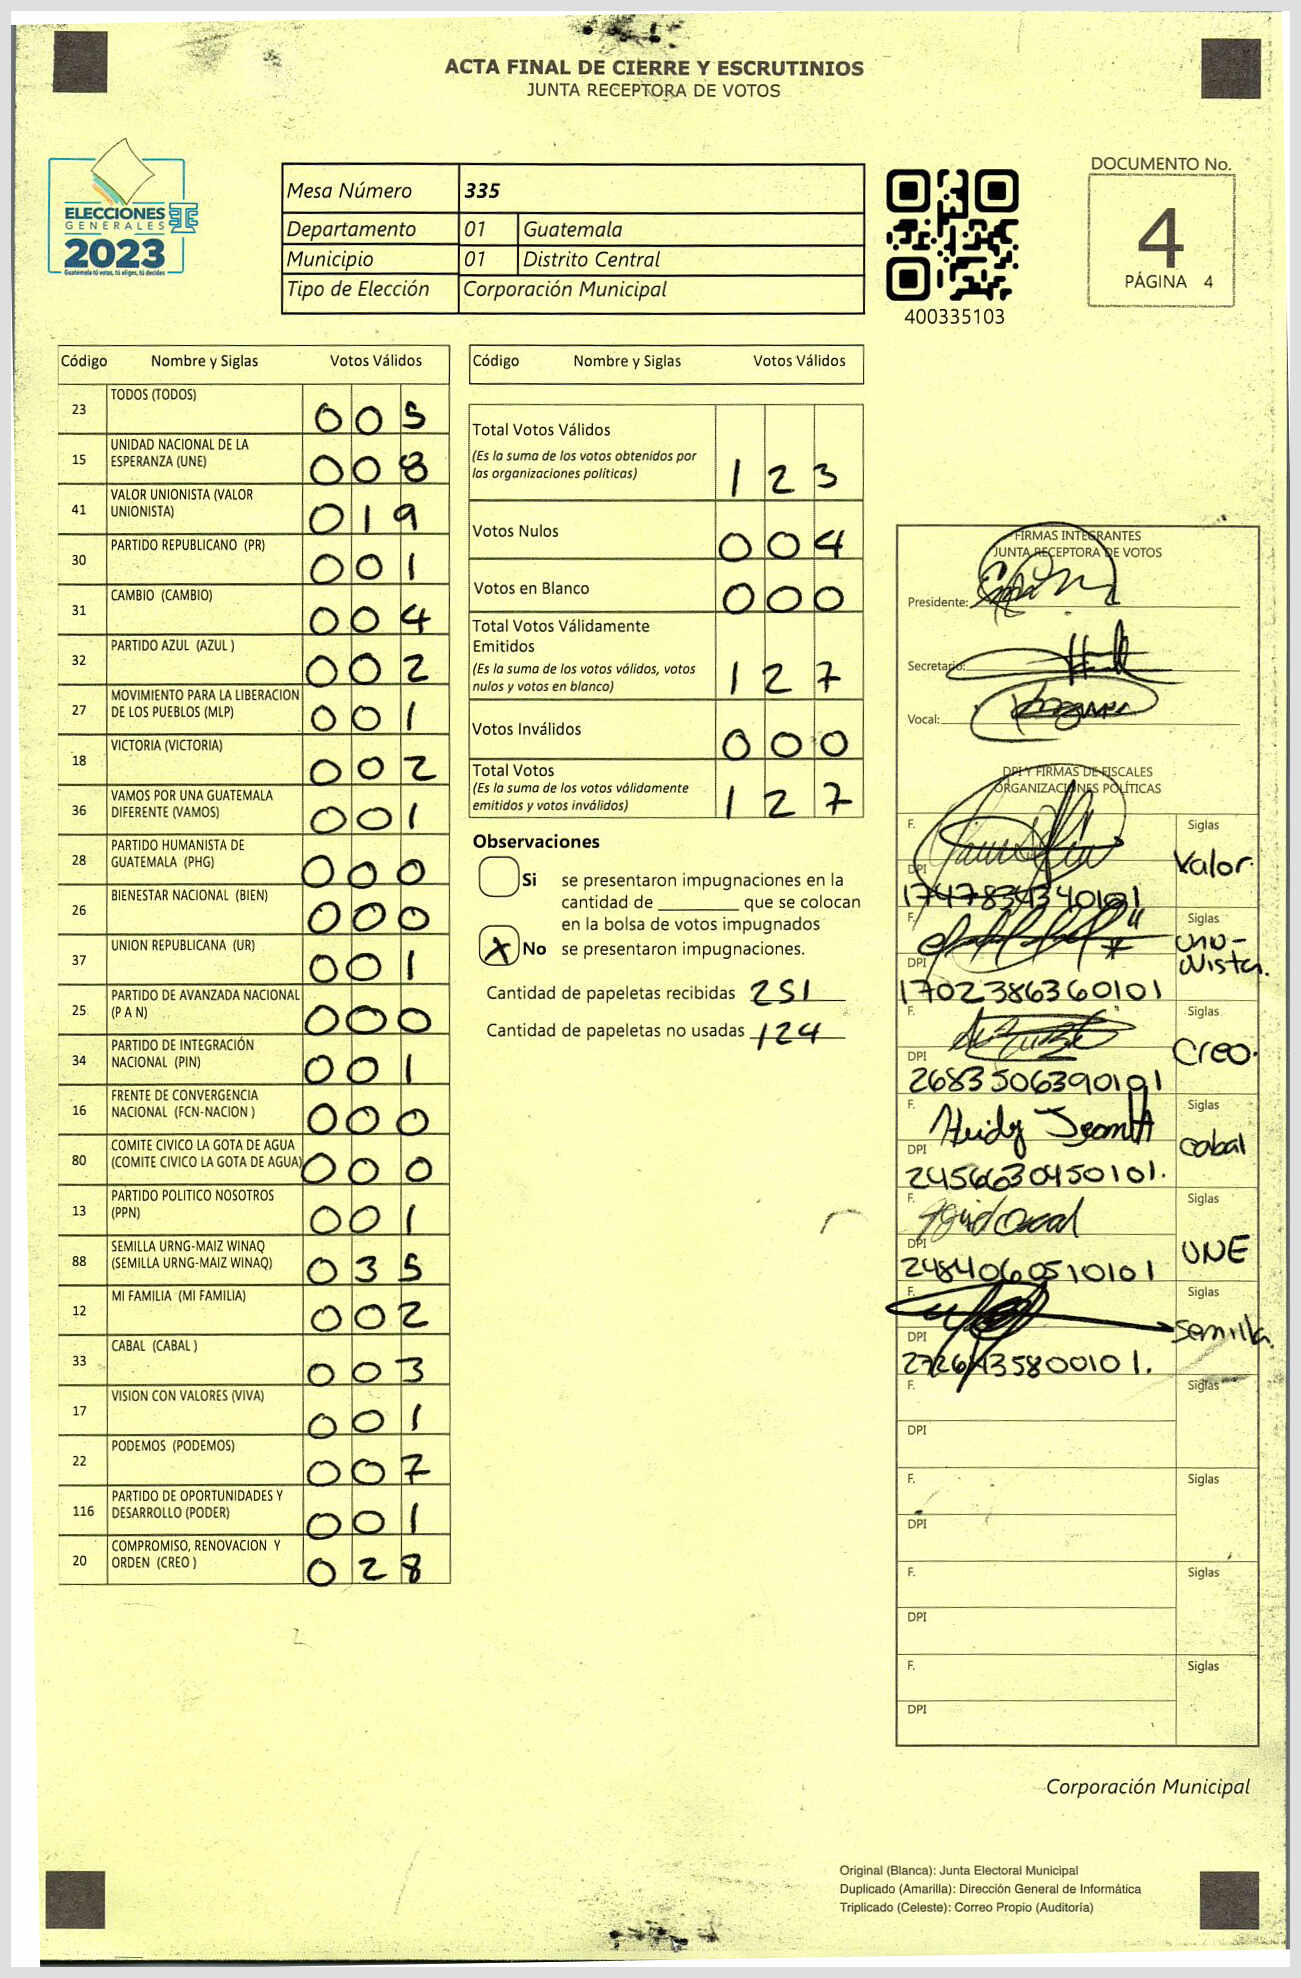 ACTA FINAL DE CIERRE Y ESCRUTINIOS
JUNTA RECEPTORA DE VOTOS
ELECCIONES
GENERALES
2023
Guatemala tú votas, tú eliges, tú decides
Mesa Número 335
Departamento 01 Guatemala
Municipio 01 Distrito Central
Tipo de Elección Corporación Municipal
400335103
DOCUMENTO No.
4
PÁGINA 4
Código Nombre y Siglas Votos Válidos
23 TODOS (TODOS) 005
15 UNIDAD NACIONAL DE LA
ESPERANZA (UNE) 008
41 VALOR UNIONISTA (VALOR
UNIONISTA) 019
30 PARTIDO REPUBLICANO (PR) 001
31 CAMBIO (CAMBIO) 004
32 PARTIDO AZUL (AZUL ) 002
27 MOVIMIENTO PARA LA LIBERACION
DE LOS PUEBLOS (MLP) 001
18 VICTORIA (VICTORIA) 002
36 VAMOS POR UNA GUATEMALA
DIFERENTE (VAMOS) 001
28 PARTIDO HUMANISTA DE
GUATEMALA (PHG) 000
26 BIENESTAR NACIONAL (BIEN) 000
37 UNION REPUBLICANA (UR) 001
25 PARTIDO DE AVANZADA NACIONAL
(P A N) 000
34 PARTIDO DE INTEGRACIÓN
NACIONAL (PIN) 001
16 FRENTE DE CONVERGENCIA
NACIONAL (FCN-NACION ) 000
80 COMITE CIVICO LA GOTA DE AGUA
(COMITE CIVICO LA GOTA DE AGUA) 000
13 PARTIDO POLITICO NOSOTROS
(PPN) 001
88 SEMILLA URNG-MAIZ WINAQ
(SEMILLA URNG-MAIZ WINAQ) 035
12 MI FAMILIA (MI FAMILIA) 002
33 CABAL (CABAL ) 003
17 VISION CON VALORES (VIVA) 001
22 PODEMOS (PODEMOS) 007
116 PARTIDO DE OPORTUNIDADES Y
DESARROLLO (PODER) 001
20 COMPROMISO, RENOVACION Y
ORDEN (CREO ) 028
Código Nombre y Siglas Votos Válidos
Total Votos Válidos
(Es la suma de los votos obtenidos por
las organizaciones políticas) 123
Votos Nulos 004
Votos en Blanco 000
Total Votos Válidamente
Emitidos
(Es la suma de los votos válidos, votos
nulos y votos en blanco) 127
Votos Inválidos 000
Total Votos
(Es la suma de los votos válidamente
emitidos y votos inválidos) 127
Observaciones
Si se presentaron impugnaciones en la
cantidad de ________ que se colocan
en la bolsa de votos impugnados
X No se presentaron impugnaciones.
Cantidad de papeletas recibidas 251
Cantidad de papeletas no usadas 124
FIRMAS INTEGRANTES
JUNTA RECEPTORA DE VOTOS
Presidente:
Secretario:
Vocal:
DPI Y FIRMAS DE FISCALES
ORGANIZACIONES POLÍTICAS
F. Siglas
Valor.
DPI
1747834340101
F. Siglas
unio-
nista.
DPI
1702386360101
F. Siglas
Creo.
DPI
2683506390101
F. Heidy Siglas
cabal
DPI
2456630450101.
F. Siglas
UNE
DPI
2484060510101
F. Siglas
Semilla.
DPI
F. Siglas
DPI
F. Siglas
DPI
F. Siglas
DPI
F. Siglas
DPI
Corporación Municipal
Original (Blanca): Junta Electoral Municipal
Duplicado (Amarilla): Dirección General de Informática
Triplicado (Celeste): Correo Propio (Auditoría)